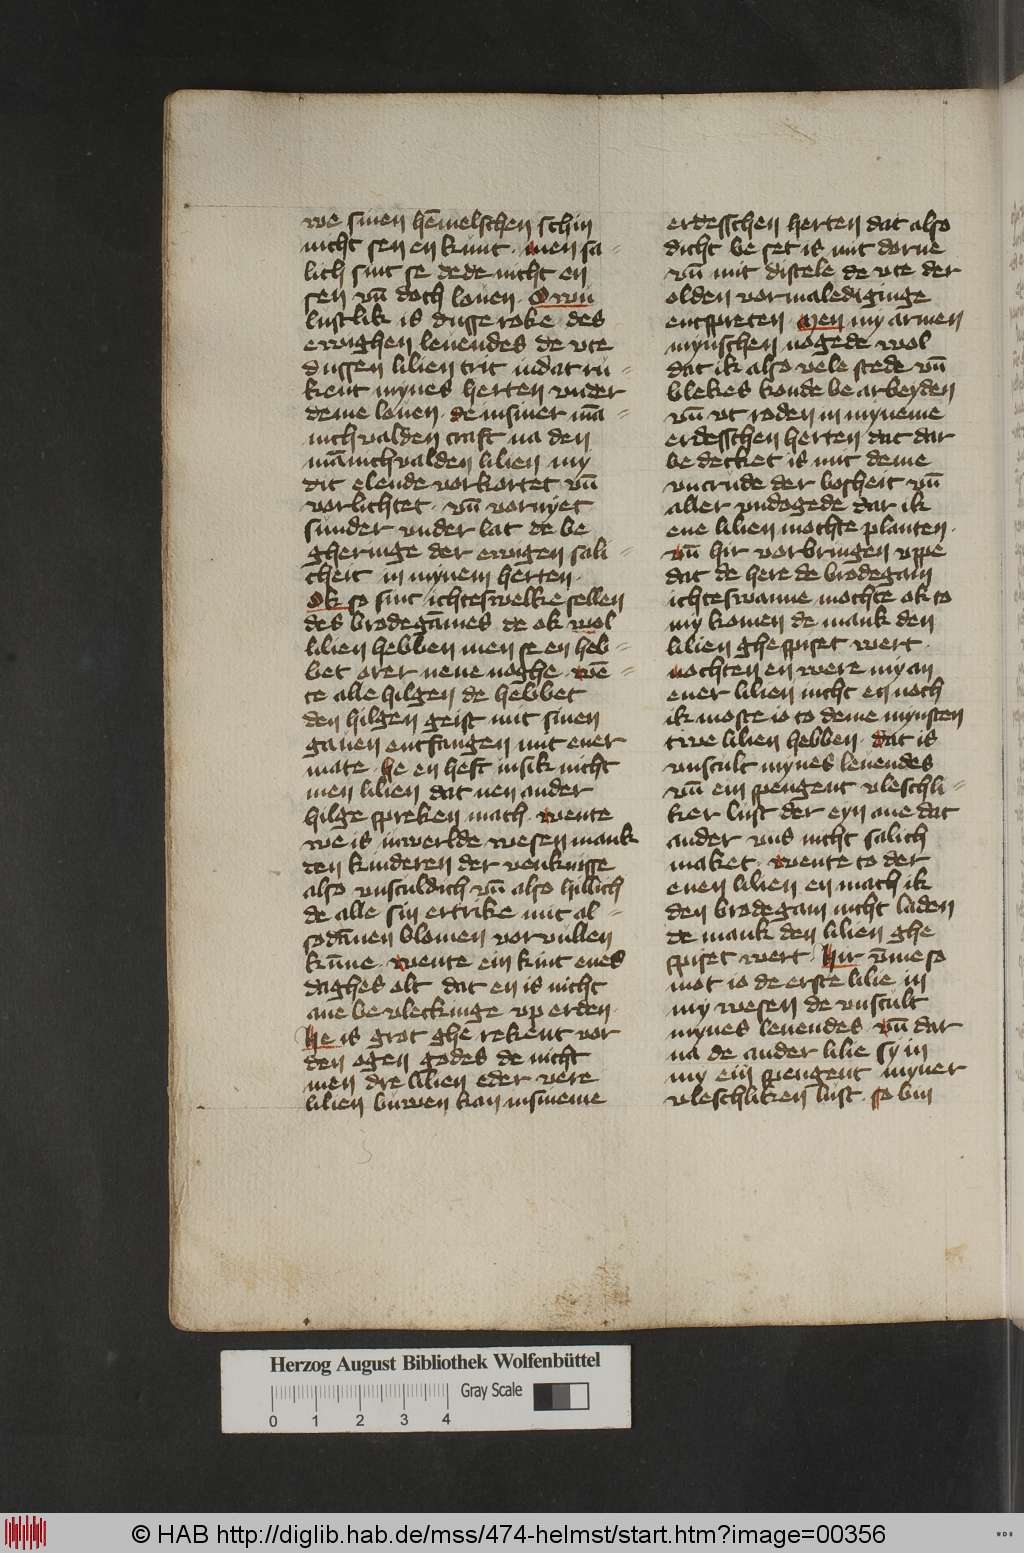 we sinen hēmelschen schin
nicht sen en kunt. men sa=
lich sint se de de nicht en
sen vn̄ doch louen. O wu
lustlik is dusse roke des
ewighen leuendes de vte
dussen lilien trit in dat ru=
kent mynes herten vnder
deme louen. de in siner mā=
nichualden craft na den
mānichualden lilien my
dit elende vorkortet vn̄
vorlichtet. vn̄ vornyet
sunder vnder lat de be
gheringe der ewigen sali=
cheit in mynem herten.
Ok so sint ichteswelke sellen
des brodegāmes de ok wol
lilien hebben men se en heb=
bet orer nene noghe. wē=
te alle hilgen de hebbet
den hilgen geist mit sinen
gauen entfangen mit ener
mate. he en heft in sik nicht
men lilien dat nen ander
hilge spreken mach. wente
we is inwerlde wesen mank
den kinderen der venknisse
also vnsculdich vn̄ also hillich
de alle sin ertrike mit al=
sodānen blomen vorvullen
kun̄ne. wente ein kint enes
daghes olt dat en is nicht
ane bevleckinge vp erden.
He is grot ghe rekent vor
den ogen godes de nicht
men dre lilien eder vere
lilien buwen kan in sineme
erdesschen herten dat also
dicht be set is mit dorne
vn̄ mit distele de vte der
olden vormalediginge
entspreten. Men my armen
mynschen nogede wol
dat ik also vele stede vn̄
blekes konde be arbeyden
vn̄ vt roden in myneme
erdesschen herten dat dar
be decket is mit deme
vncrude der bosheit vn̄
aller vndogede dar ik
ene lilien mochte planten.
vn̄ hir vorbringen vppe
dat de here de brodegam
ichteswanne mochte ok to
my komen de mank den
lilien ghe spiset wert.
nochten en were my an
ener lilien nicht en noch
ik moste io to deme mynsten
twe lilien hebben. dat is
vnscult mynes leuendes
vn̄ ein spengent vleschli=
ker lust der eyn ane dat
ander vns nicht salich
maket. wente to der
enen lilien en mach ik
den brodegam nicht laden
de mank den lilien ghe
spiset wert. Hir v̄me so
mot io de erste lilie in
my wesen de vnscult
mynes leuendes. vn̄ dar
na de ander lilie sy in
my ein spengent myner
vleschliken lust. so bin
Herzog August Bibliothek Wolfenbüttel
Gray Scale
0 1 2 3 4
© HAB http://diglib.hab.de/mss/474-helmst/start.htm?image=00356